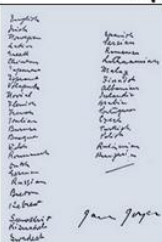 English
Irish
Norwegian
Latin
Greek
Chinese
Japanese
Esperanto
Volapuk
Novial
Flemish
French
Italian
Burmese
Basque
Roumansch
Dutch
German
Russian
Breton
Hebrew
Sanskrit
Swedish
Spanish
Persian
Rumanian
Lithuanian
Malay
Finnish
Albanian
Icelandic
Arabic
Portuguese
Czech
Turkish
Polish
Ruthenian
Hungarian
James Joyce